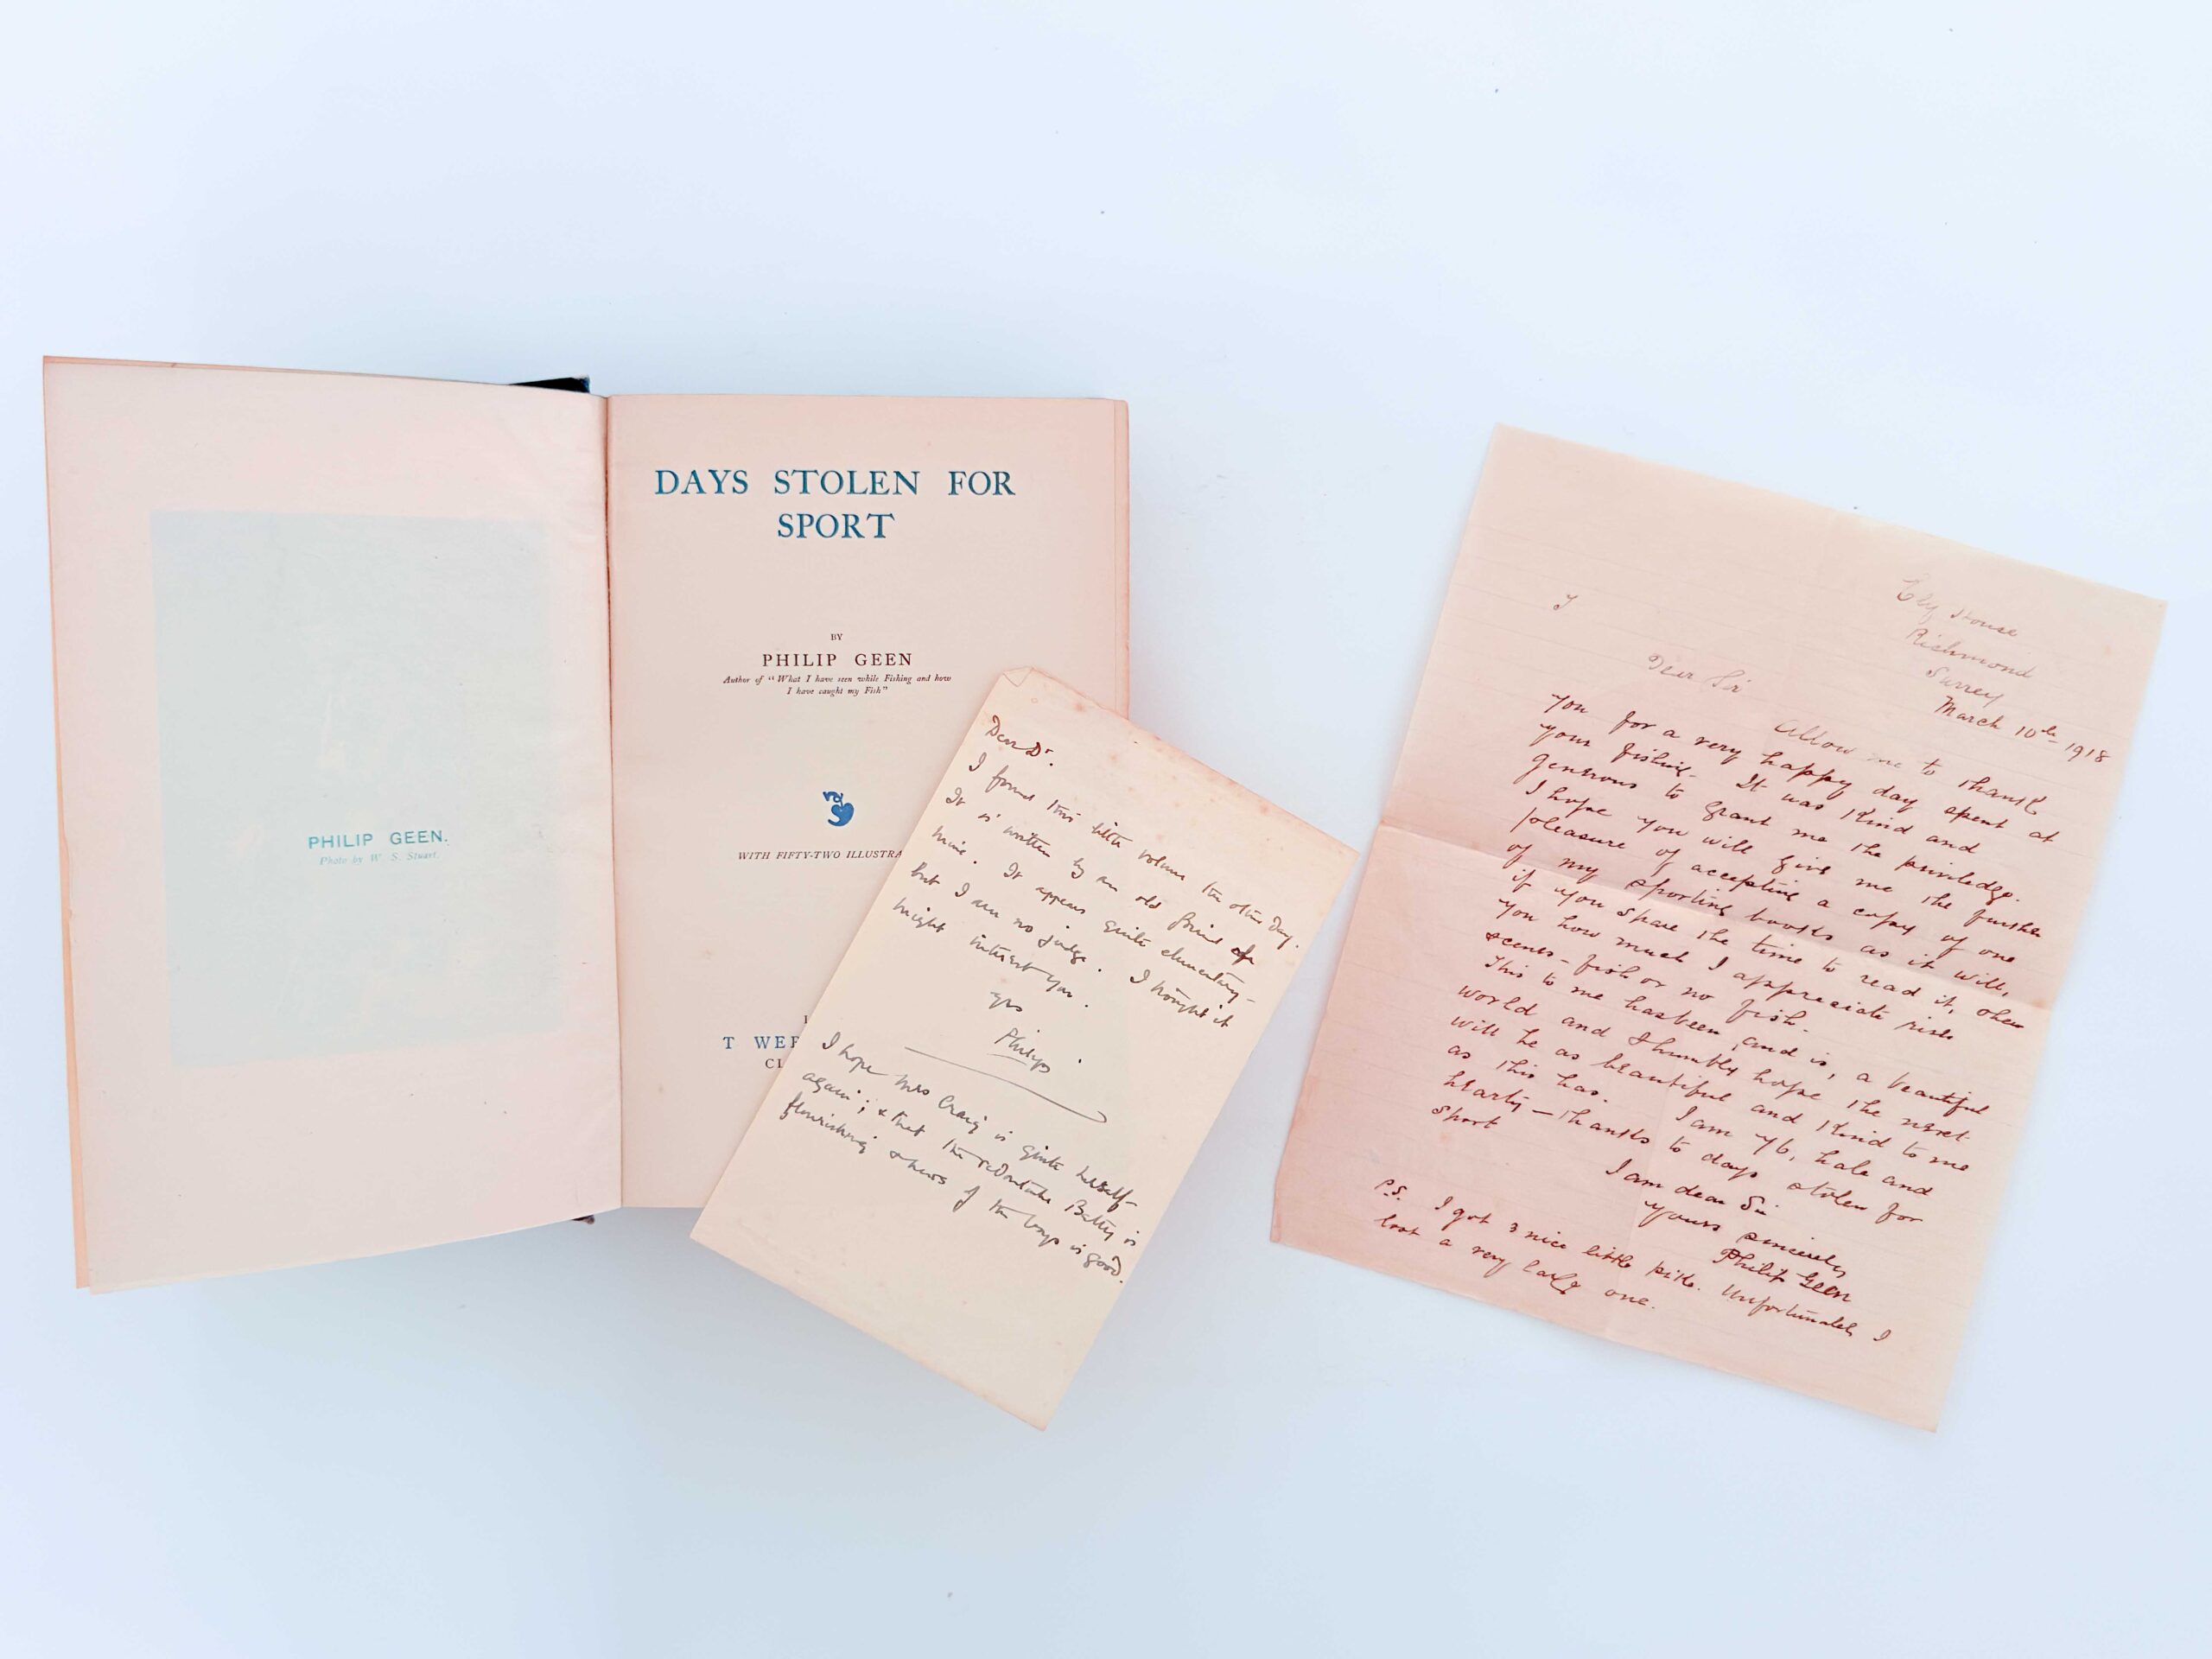 PHILIP GEEN.
Photo by W. S. Stuart.
DAYS STOLEN FOR
SPORT
BY
PHILIP GEEN
Author of "What I have seen while Fishing and how
I have caught my Fish"
WITH FIFTY-TWO ILLUSTRA
T WER
CL
Dear Dr.
I found this little volume the other Day.
It is written by an old friend of
mine. It appears quite elementary -
but I am no judge. I thought it
might interest you.
yrs
Philips.
I hope Mrs Craig is quite herself
again; & that the redoubtable Betty is
flourishing & news of the boys is good.
Ely House
Richmond
Surrey
March 10th 1918
Dear Sir
Allow me to thank
you for a very happy day spent at
your fishing. It was kind and
generous to grant me the priviledge.
I hope you will give me the further
pleasure of accepting a copy of one
of my sporting books as it will,
if you spare the time to read it, show
you how much I appreciate
scenes - fish or no fish.
This to me has been, and is, a beautiful
world and I humbly hope the next
will be as beautiful and kind to me
as this has. I am 76, hale and
hearty - thanks to days stolen for
sport
I am dear Sir
yours sincerely
Philip Geen
P.S. I got 3 nice little pike. Unfortunately I
lost a very large one.